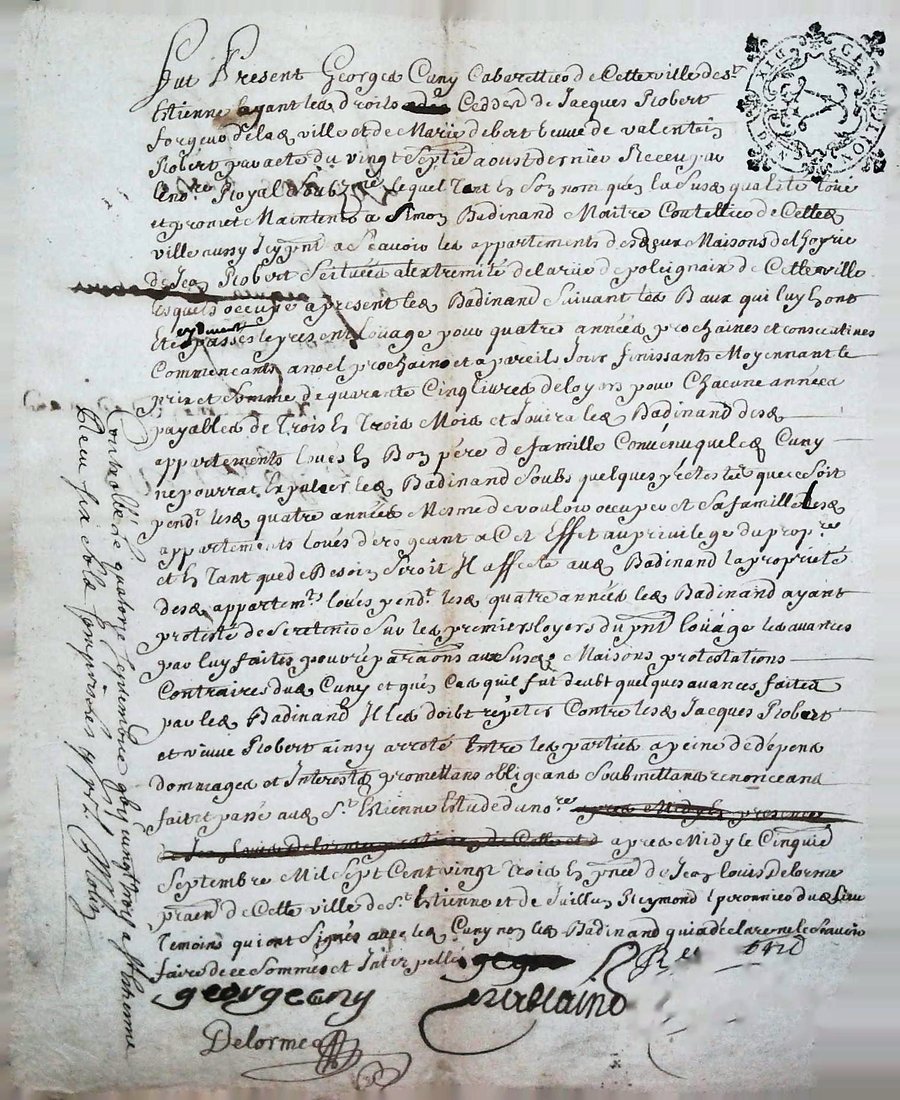 fut Present George Cuny Cabarettier de Cette ville de St
Estienne ayant les droits Ceddés de Jacques Robert
forgeur de la de ville et de Marie debert veuve de valentin
Robert par acte du vingt Septie aoust dernier Receu par
le Royal Soubzné lequel Tant En Son nom qu'en la Susde qualité loue
et promet Maintenir a Simon Badinand Maitre Coutellier de Cette de
ville aussy Icy pnt a Scavoir les appartements des deux Maisons de
de Jean Robert Scituées a lextremité de la rüe de poleignaix de Cette ville
lesquels occupe a present led Badinand Suivant les Baux qui luy En ont
Eté passés le present louage pour quatre années prochaines et consecutives
Commencants a noel prochain et a pareils Jour finissants Moyennant le
prix et Somme de quarante Cinq livres de loyers pour Chacune années
payables de Trois En Trois Mois et Jouira led Badinand desd
appartements loués En Bon pére de famille Convenu que led Cuny
ne pourrat Expulser led Badinand Soubs quelques prétextes que ce Soit
pendt lesd quatre années Mesme de vouloir occuper et Sa famille lesd
appartements loués derogeant a Cet Effet au privilege du propre
et En Tant que de Besoin Seroit Il affecte aud Badinand la propriété
desd appartemts loués pendt lesd quatre années led Badinand ayant
protesté de Se retenir Sur les premiers loyers du pnt loüage les avances
par luy faites pour réparaons aux Susd Maisons protestations
Contraires dud Cuny et qu'en Cas quil fut deubt quelques avances faites
par led Badinand Il les doibt répéter Contre lesd Jacques Robert
et veuve Robert ainsy arroté Entre les parties a peine de dépens
dommages et Interests promettans obligeans Soubmettans renonceans
fait et passé aud St Estienne Estude du nore apres Midy En presence
de Jean Louis Delorme praticien de Cette et apres Midy le Cinquie
Septembre Mil Sept Cent vingt Trois En pnce de Jean louis Delorme
praen de Cette ville de St Estienne et de Guillaume Reymond Eperonnier dud Lieu
temoins qui ont Signés avec led Cuny non led Badinand qui a declaré ne le Scavoir
faire de ce Sommé et Interpellé
george cuny
Delorme
Controllé a St Estienne le quatorze septembre gbij vingt trois
Receu six sols
GEN
NOIT
DENS